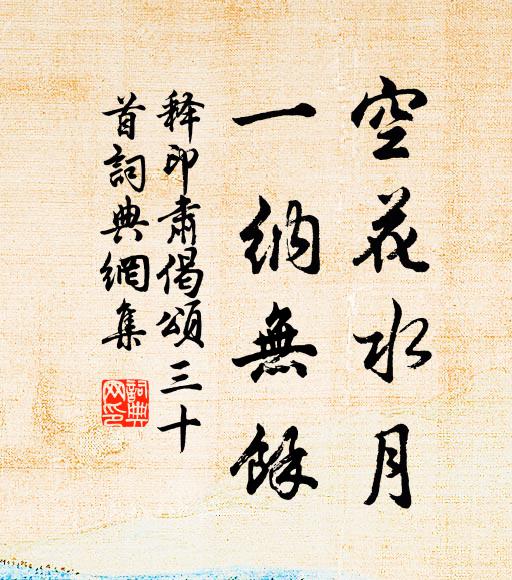 空花水月
一納無餘
释印肃偈頌三十
首詞典網集
詞典
网印